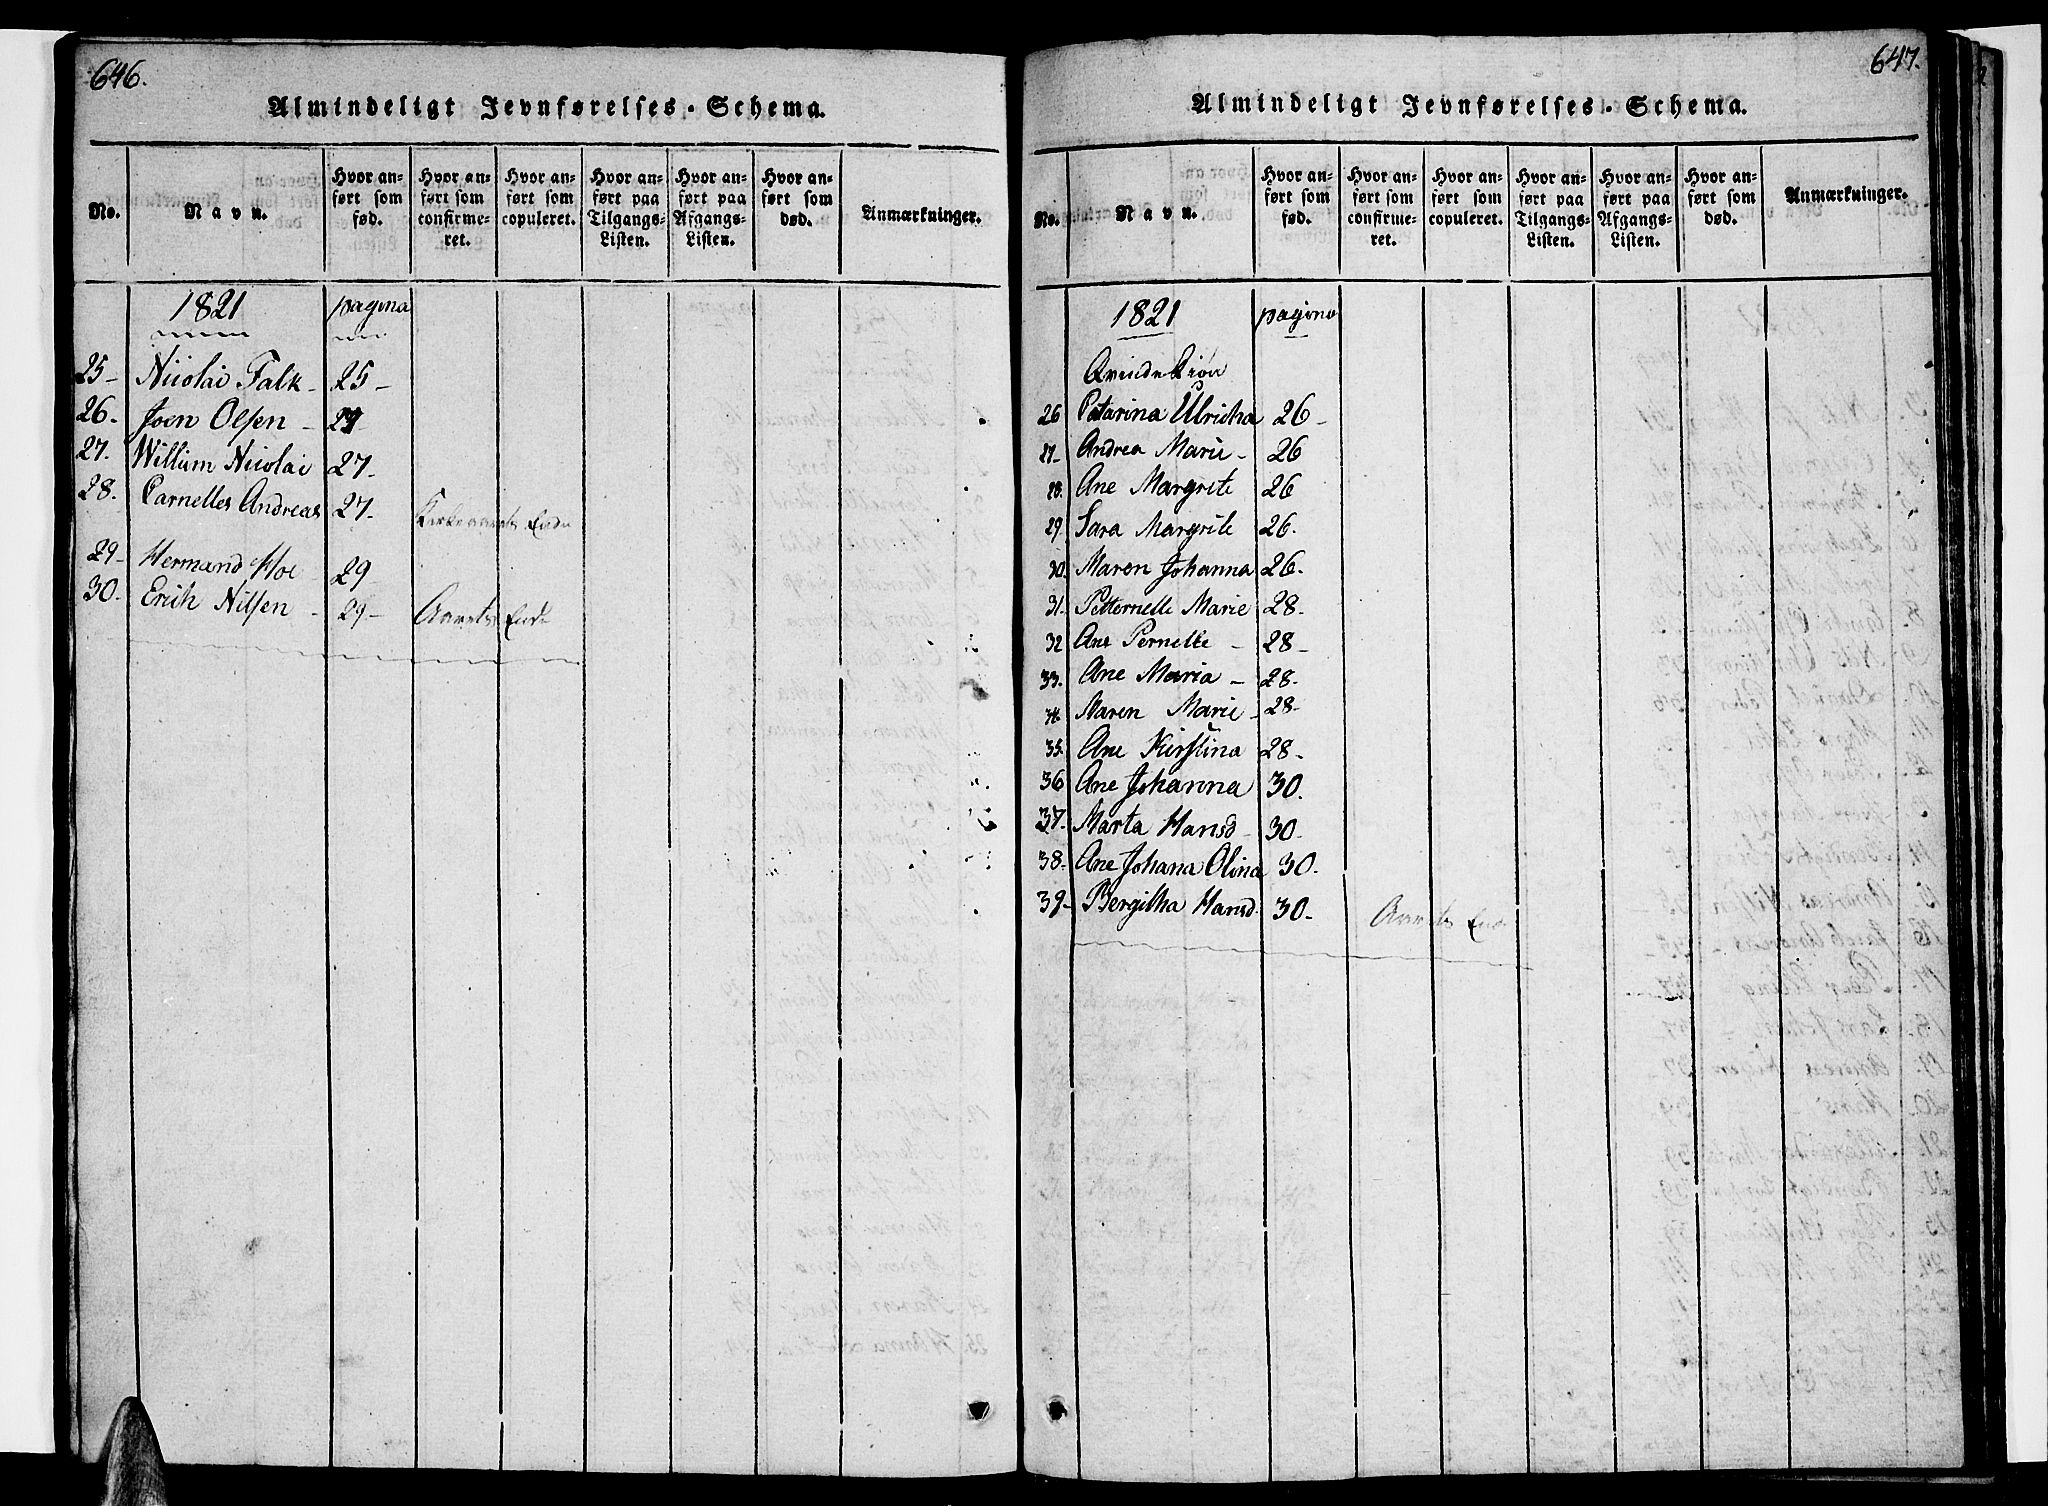 646.
Almindeligt Jevnførelses-Schema.
No.
Navn.
Hvor an-
ført som
fød.
Hvor an-
ført som
confirme-
ret.
Hvor an-
ført som
copuleret.
Hvor an-
ført paa
Tilgangs-
Listen.
Hvor an-
ført paa
Afgangs-
Listen.
Hvor an-
ført som
død.
Anmærkninger.
1821 pagina
25- Nicolai Falk- 25-
26. Joen Olsen - 27
27. Willum Nicolai 27-
28. Carnelles Andreas 27- Kirkeaarets Ende
29- Hermand Moe 29
30. Erich Nilsen - 29- Aarets Ende
647.
Almindeligt Jevnførelses-Schema.
No.
Navn.
Hvor an-
ført som
fød.
Hvor an-
ført som
confirme-
ret.
Hvor an-
ført som
copuleret.
Hvor an-
ført paa
Tilgangs-
Listen.
Hvor an-
ført paa
Afgangs-
Listen.
Hvor an-
ført som
død.
Anmærkninger.
1821 pagina
Qvinde Kiøn
26 Catarina Ulricha 26-
27- Andrea Marie- 26
28. Ane Margrete 26
29. Sara Margrite 26.
30. Maren Johanna 26.
31- Petternelle Marie 28-
32 Ane Pernelle - 28-
33. Ane Maria - 28-
34. Maren Marie- 28-
35- Ane Kirstina 28-
36 Ane Johanna 30.
37- Marta Hansd- 30-
38- Ane Johana Olina 30-
39- Bergitha Hansd. 30- Aarets Ende